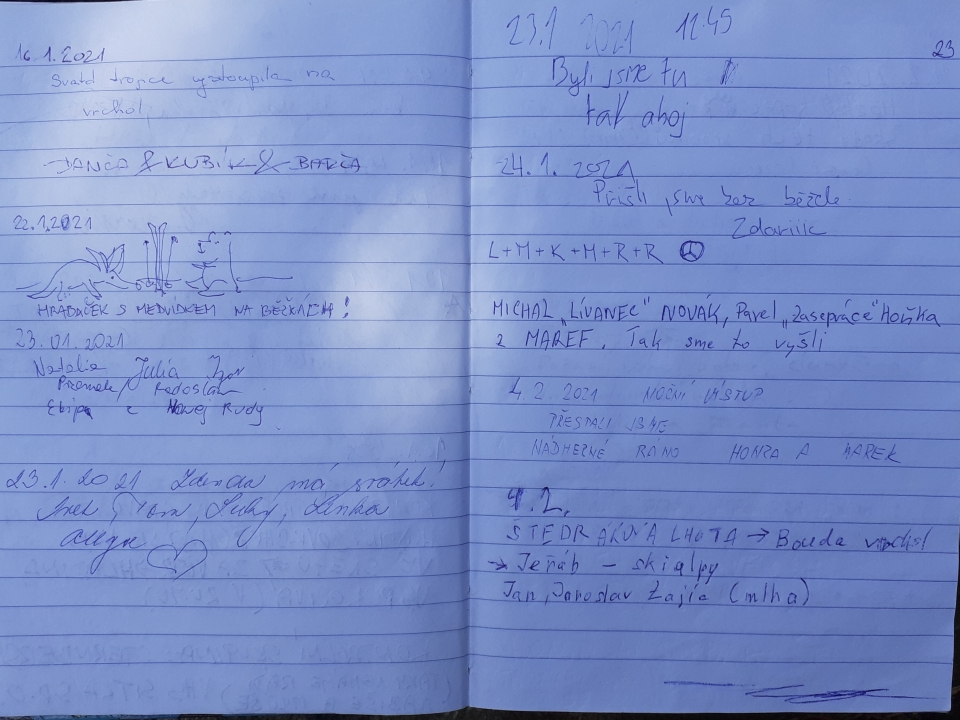 16.1.2021
Svatá trojce vystoupila na
vrchol
DANČA & KUBÍK & BARČA
22.1.2021
HRADÁČEK S MEDVÍDKEM NA BĚŽKÁCH!
23.01.2021
Natalia Julia Igor
Przemek, Radosław
Ekipa z Nowej Rudy
23.1.2021 Zdenda má svátek!
Tom, Lenka
23.1 2021 11:45
23
Byli jsme tu
tak ahoj
24.1. 2021
Přišli jsme bez běžek
Zdariiik
L+M+K+M+R+R
MICHAL „LÍVANEC" NOVÁK, Pavel „zasepráce"
z MAREF. Tak sme to vyšli
4 2. 2021 NOČNÍ VÝSTUP
PŘESPALI JSME
NÁDHERNÉ RÁNO HONZA A MAREK
4.2.
ŠTEDRÁKOVA LHOTA → Bouda vrchol
→ Jeřáb - skialpy
Jan, Jaroslav Zajíc (mlha)